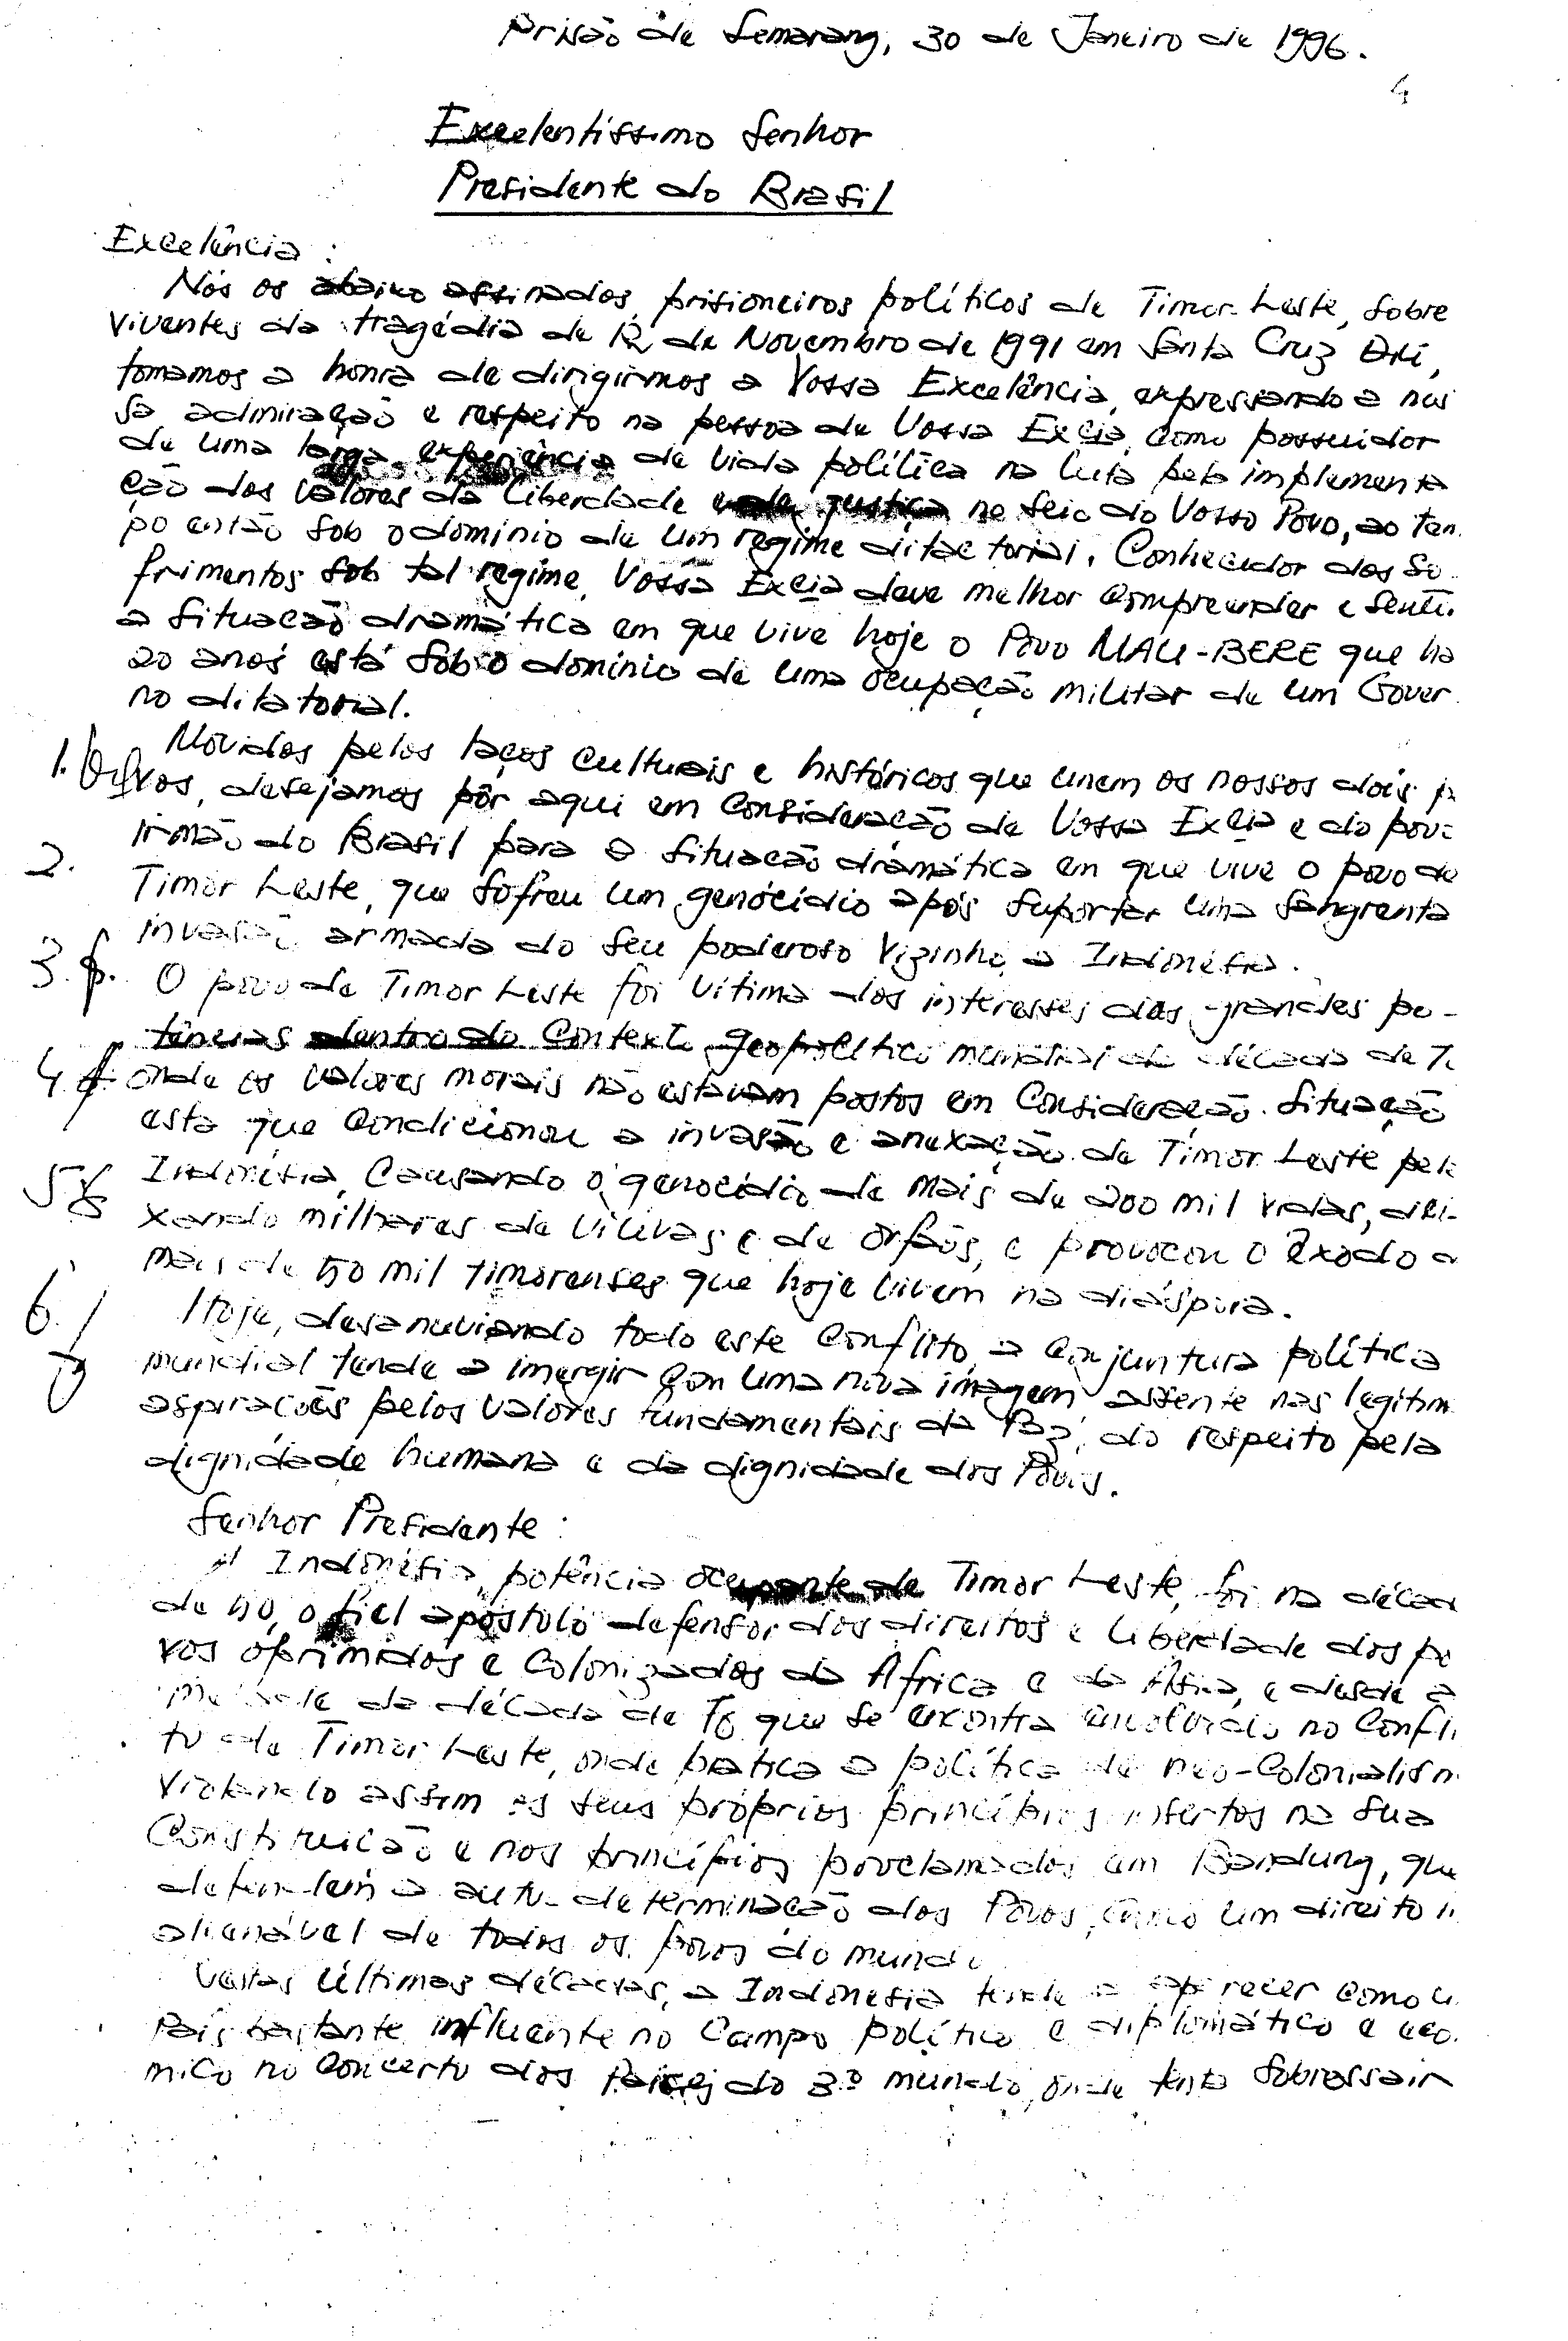 Prisão de Semarang, 30 de Janeiro de 1996.
4
Excelentíssimo Senhor
Presidente do Brasil
Excelência :
Nós os abaixo assinados, prisioneiros políticos de Timor Leste, sobre
viventes da tragédia de 12 de Novembro de 1991 em Santa Cruz Dili,
tomamos a honra de dirigirmos a Vossa Excelência, expressando a nos
sa admiração e respeito na pessoa de Vossa Excia, como possuidor
de uma larga experiência de vida política na luta pela implementa
ção dos valores da liberdade e da justiça no seio do Vosso Povo, ao tem
po então sob o domínio de um regime ditactorial. Conhecedor dos so
frimentos sob tal regime, Vossa Excia deve melhor compreender e senti
a situação dramática em que vive hoje o Povo MAU-BERE que há
20 anos está sob o domínio de uma ocupação militar de um Gover
no ditatorial.
1. Movidos pelos laços culturais e históricos que unem os nossos dois p
vos, desejamos pôr aqui em consideração de Vossa Excia e do povo
irmão do Brasil para a situação dramática em que vive o povo de
2. Timor Leste, que sofreu um genocídio após suportar uma sangrenta
invasão armada do seu poderoso vizinho, a Indonésia.
3. O povo de Timor Leste foi vítima dos interesses das grandes po-
tências dentro do contexto geopolítico mundial da década de 7
4. onde os valores morais não estavam postos em consideração. Situação
esta que condicionou a invasão e anexação de Timor Leste pela
5 Indonésia, causando o genocídio de mais de 200 mil vidas, dei-
xando milhares de viúvas e de órfãos, e provocou o êxodo d
mais de 50 mil timorenses que hoje vivem na diáspora.
6. Hoje, desanuviando todo este conflito, a conjuntura política
mundial tende a imergir com uma nova imagem assente nas legítim
aspirações pelos valores fundamentais da Paz, do respeito pela
dignidade humana e da dignidade dos Povos.
Senhor Presidente :
A Indonésia, potência ocupante de Timor Leste, foi na décad
de 50, o fiel apóstolo defensor dos direitos e liberdade dos po
vos oprimidos e colonizados da África e da Ásia, e desde a
metade da década de 70 que se encontra envolvida no confli
to de Timor Leste, onde pratica a política de neo-colonialism
violando assim os seus próprios princípios insertos na sua
Constituição e nos princípios proclamados em Bandung, que
defendem a auto-determinação dos Povos, como um direito i
alienável de todos os povos do mundo
Nestas últimas décadas, a Indonesia tende a aparecer como u
País bastante influente no campo político e diplomático e eco
mico no concerto dos Países do 3º mundo, onde tenta sobressair